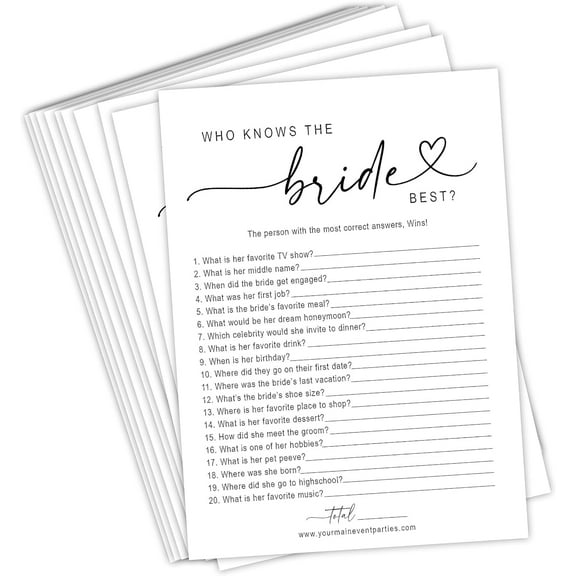 WHO KNOWS THE
bride
BEST?
The person with the most correct answers, Wins!
1. What is her favorite TV show?
2. What is her middle name?
3. When did the bride get engaged?
4. What was her first job?
5. What is the bride's favorite meal?
6. What would be her dream honeymoon?
7. Which celebrity would she invite to dinner?
8. What is her favorite drink?
9. When is her birthday?
10. Where did they go on their first date?
11. Where was the bride's last vacation?
12. What's the bride's shoe size?
13. Where is her favorite place to shop?
14. What is her favorite dessert?
15. How did she meet the groom?
16. What is one of her hobbies?
17. What is her pet peeve?
18. Where was she born?
19. Where did she go to highschool?
20. What is her favorite music?
total
www.yourmaineventparties.com